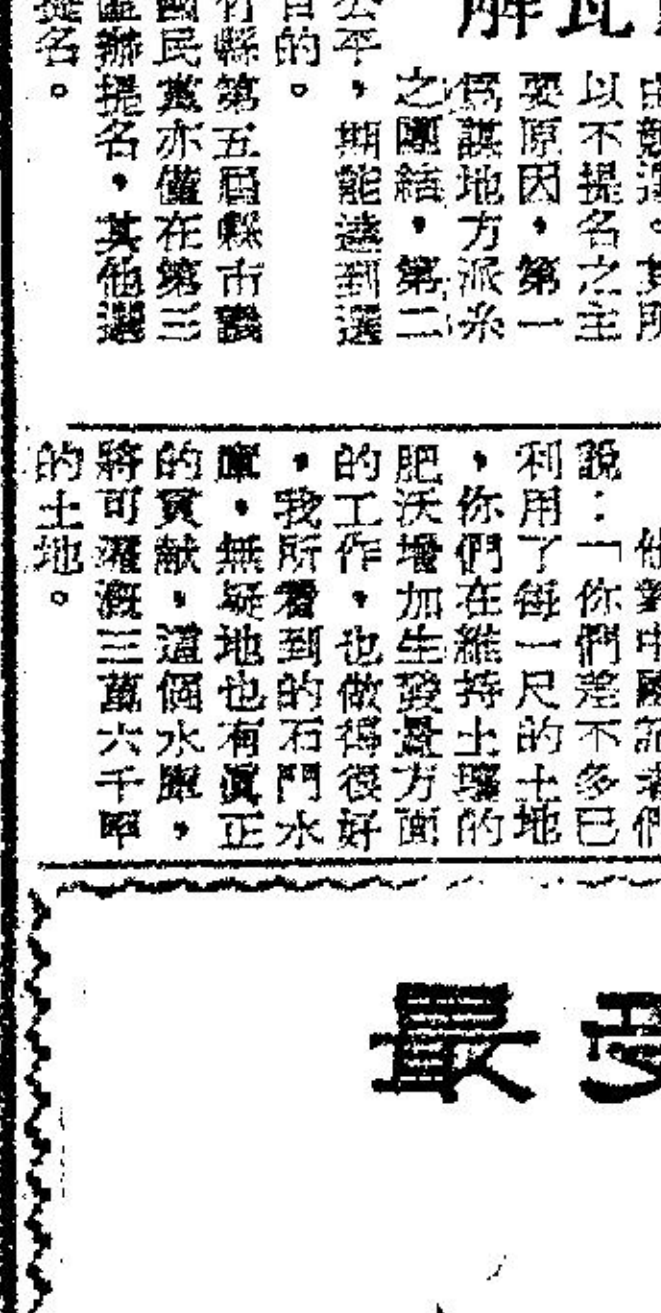 解瓦
以不提名之主
要原因，第一
為謀地方派系
之團結，第二
公平，期能達到選
目的。
竹縣第五屆縣市議
國民黨亦僅在第三
區辦提名，其他選
提名。
他對中國記者們
說：「你們差不多已
利用了每一尺的土地
，你們在維持土壤的
肥沃增加生產量方面
的工作，也做得很好
，我所看到的石門水
庫，無疑地也有真正
的貢献，這個水庫，
將可灌溉三萬六千甲
的土地。
最受